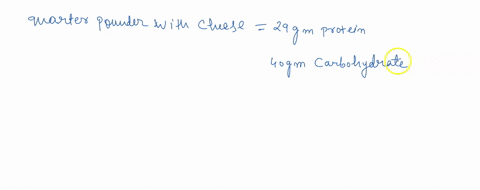 quarter pounder with cheese = 29gm protein
40gm Carbohydrate